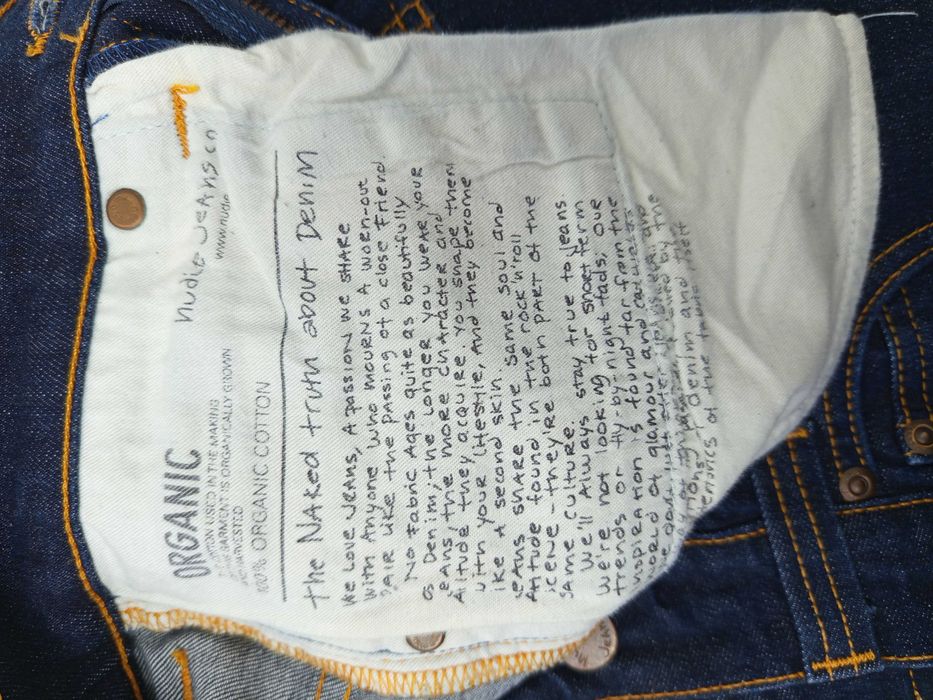 ORGANIC
COTTON USED IN THE MAKING
THIS GARMENT IS ORGANICALLY GROWN
AND HARVESTED
100% ORGANIC COTTON
nudie jeans co
www.nudie
the NAKed truth about DeniM
We love jeans, A passion we share
with Anyone who mourns A worn-out
pAir like the passing of a close friend.
No fabric Ages quite as beautifully
as Denim, the longer you wear your
jeans, the more character and
Attitude they acquire. You shape them
with your lifestyle, And they become
like A second skin.
jeans share the same soul and
Attitude found in the rock'n'roll
scene - they're both pArt of the
same culture.
We'll Always stay true to jeans.
We're not looking for short term
trends or fly-by-night fads. our
inspiration is found far from the
world of glamour and
by the
denim and
of the